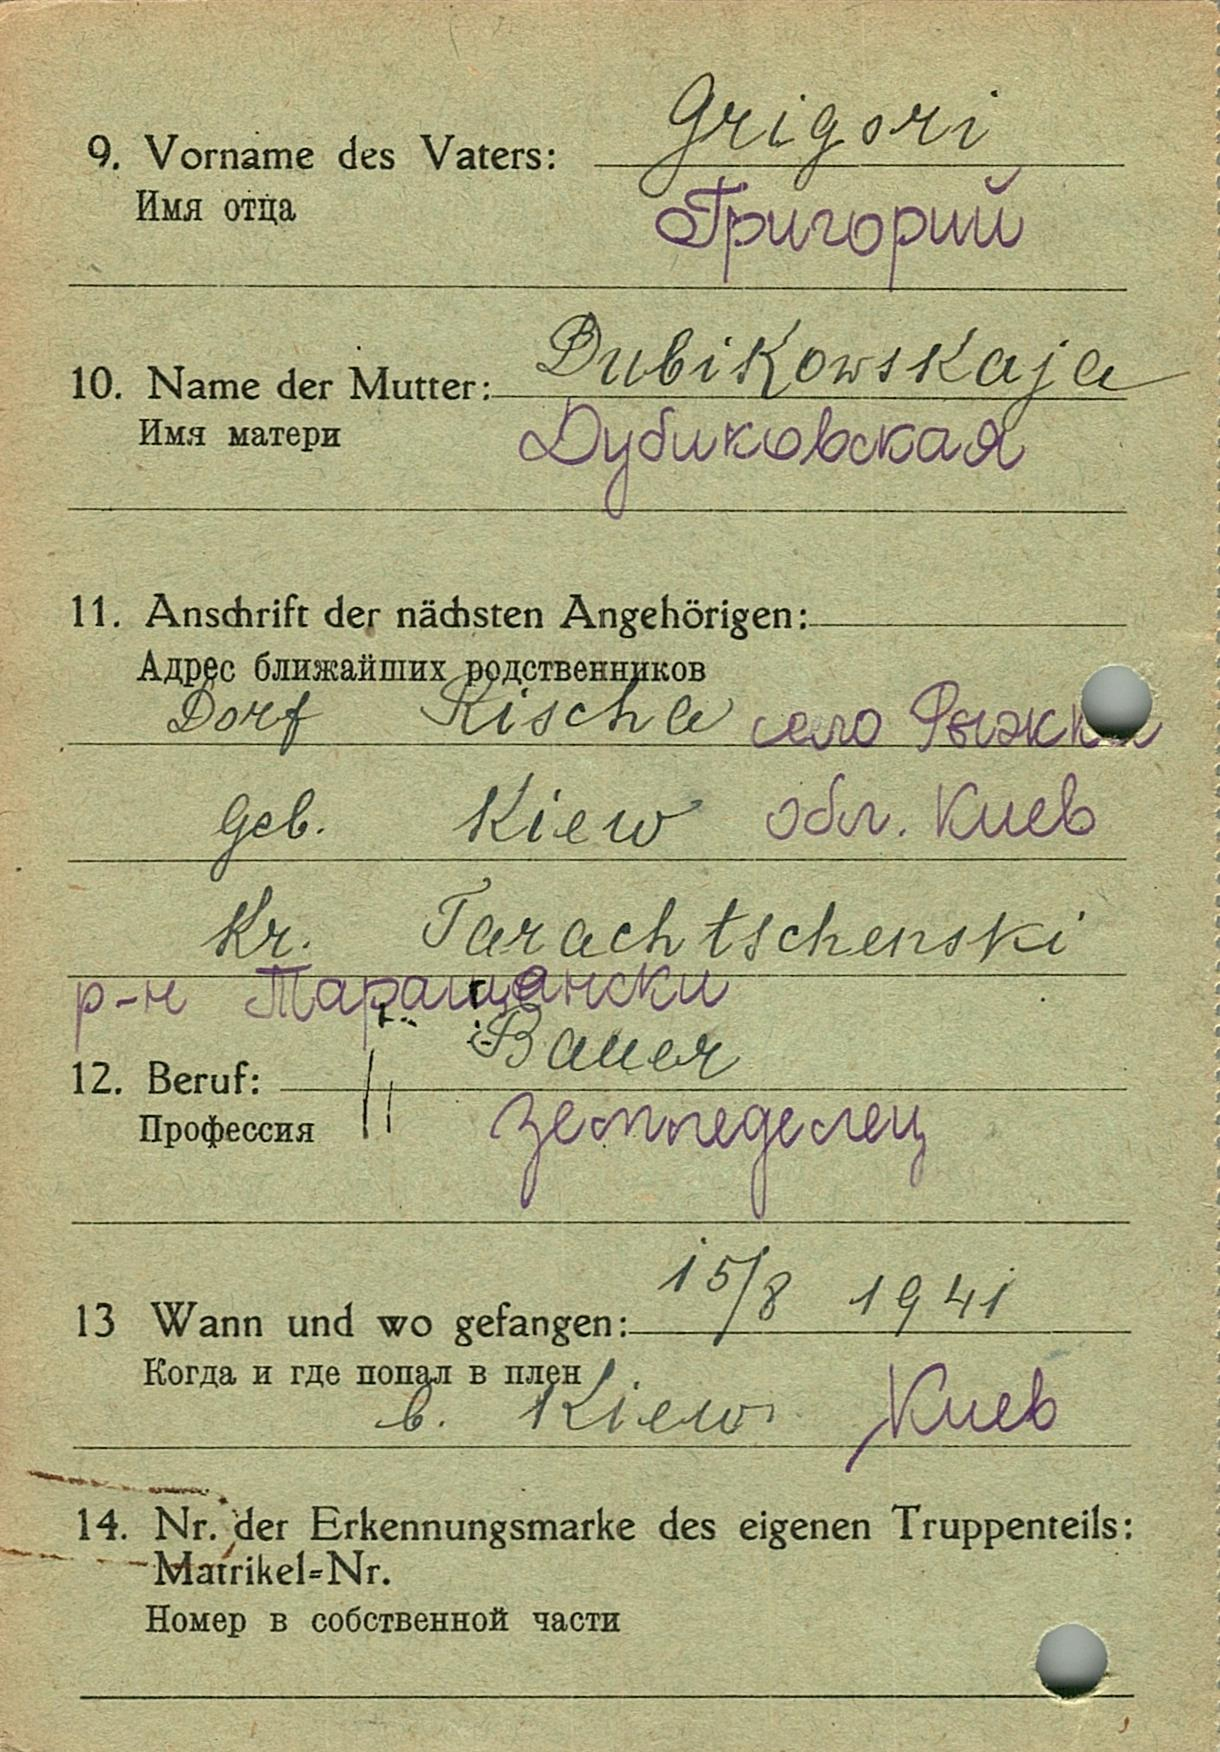 Grigori
9. Vorname des Vaters:
Имя отца
Григорий
Dubikowskaja
10. Name der Mutter:
Имя матери
Дубиковская
11. Anschrift der nächsten Angehörigen:
Адрес ближайших родственников
Dorf Rischa село Рыжки
Geb. Kiew обл. Киев
Kr. Tarachtschenski
р-н Таращански
Bauer
12. Beruf:
Профессия
земледелец
15/8 1941
13 Wann und wo gefangen:
Когда и где попал в плен
b. Kiew Киев
14. Nr. der Erkennungsmarke des eigenen Truppenteils:
Matrikel=Nr.
Номер в собственной части